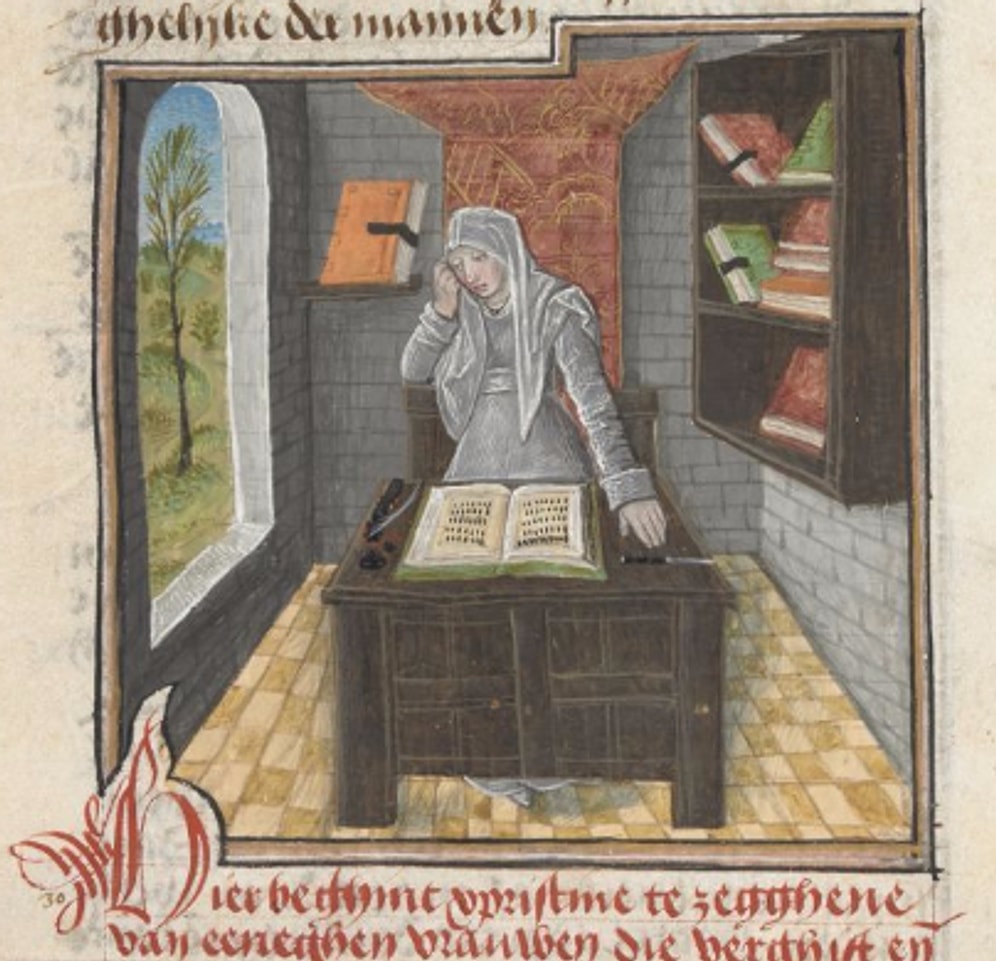 ghelijke der mannen
30
Hier beghint xpristine te zegghene
van eeneghen vrauwen die verghift eñ